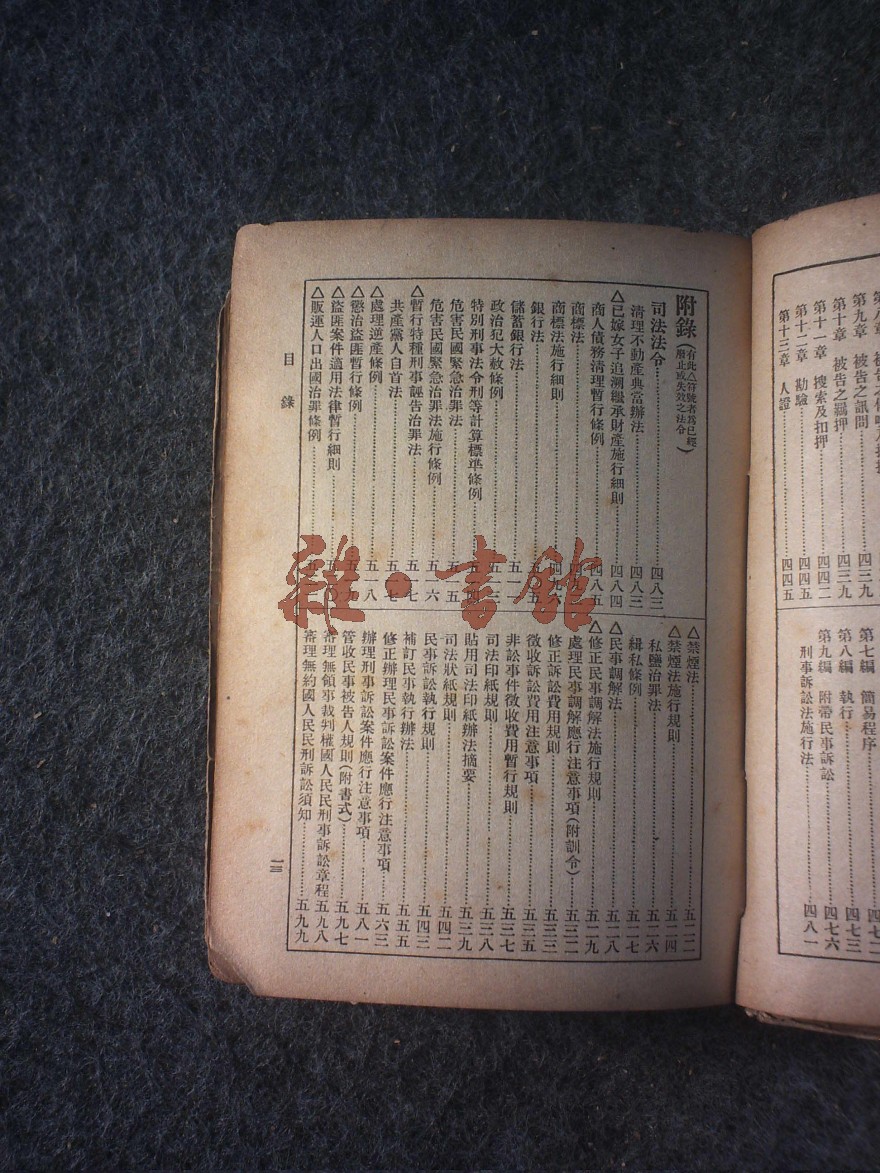 第九章　被告之訊問……四三九
第十章　被告之羈押……四三九
第十一章　搜索及扣押……四四二
第十二章　勘驗……
第十三章　人證……四四五
第七編　簡易程序……四七二
第八編　執行……四七三
第九編　附帶民事訴訟……四七六
刑事訴訟法施行法……四八一
附錄(有此△符號者爲已經廢止或失效之法令)
司法法令……四八三
清理不動產典當辦法……四八三
△已嫁女子追溯繼承財產施行細則……四八四
商人債務清理暫行條例……四八五
商標法……
商標法施行細則……
銀行法……
儲蓄銀行法……
政治犯大赦條例……
特別刑事法令刑等計算標準條例……
危害民國緊急治罪法……
危害民國緊急治罪法施行條例……五一六
△暫行特種刑事誣告治罪法……五一七
共產黨人自首法……五一七
△處理逆產條例……五一八
△懲治盜匪暫行條例……
△盜匪案件適用法律暫行細則……
△販運人口出國治罪條例……
△禁煙法……五二二
△禁煙法施行規則……五二四
私鹽治罪法……五二六
緝私條例……五二七
△民事調解法……五二八
△修正民事調解法施行規則……五二九
處理民事調解應行注意事項(附訓令)……五三二
修正訴訟費用規則……五三三
徵收訴訟費用注意事項……五三五
非訟事件徵收費用暫行規則……五三七
司法印紙規則……五三八
貼用司法印紙辦法摘要……五三九
司法狀紙規則……五四二
民事訴訟執行規則……五四三
補訂民事執行辦法……五五五
修正辦理民事訴訟案件應行注意事項……五六三
辦理刑事訴訟案件應行注意事項……五八一
管收民事被告人規則(附書式)……五九七
審理無領事裁判權國人民民刑事訴訟章程……五九八
審理無約國人民民刑訴訟須知……五九九
目錄
一三
雜·書館